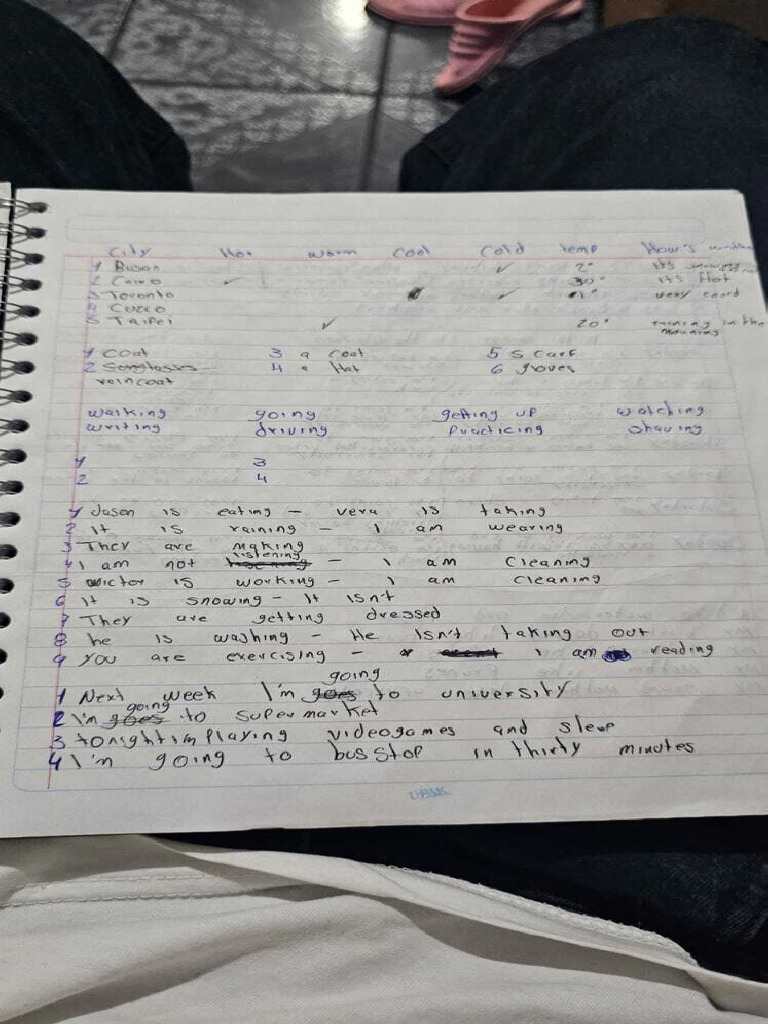 City Hot worm cool cold temp How's
1 Busan ✓ 2° it's
2 Cairo ✓ 30° it's Hot
3 Toronto ✓ 1° very
4 Cuzco
5 Taipei ✓ 20° raining in the
morning
1 coat 3 a coat 5 scarf
2 4 a Hat 6 gloves
raincoat
walking going getting up watching
writing driving Practicing shaving
1 3
2 4
1 Jason is eating - vera is taking
2 It is raining - I am wearing
3 They are making
listening
4 I am not - I am cleaning
5 victor is working - I am cleaning
6 It is snowing - It Isn't
7 They are getting dressed
8 he is washing - He Isn't taking out
9 You are exercising - I am reading
going
1 Next week I'm goes to university
going
2 I'm goes to supermarket
3 tonight i'm Playing videogames and sleep
4 I'm going to bus stop in thirty minutes